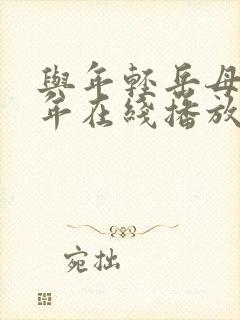 與年輕岳母
年在綫播放
宛拙